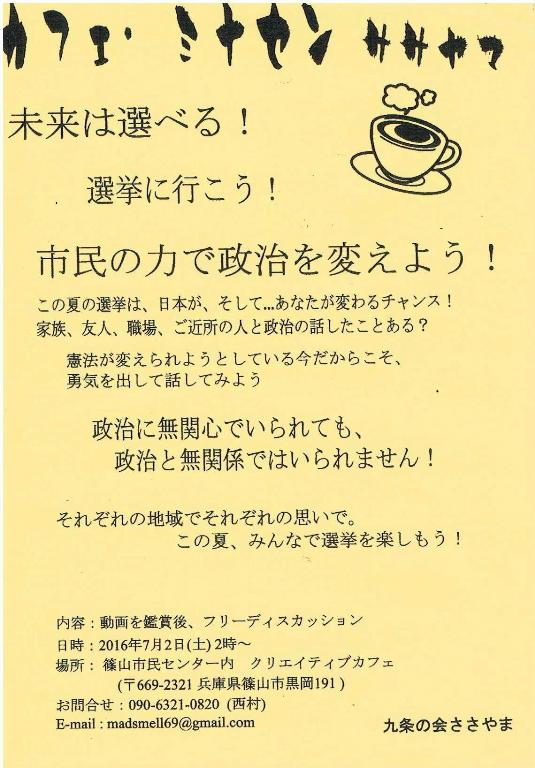 カフェ・ミナセン ササヤマ
未来は選べる！
選挙に行こう！
市民の力で政治を変えよう！
この夏の選挙は、日本が、そして...あなたが変わるチャンス！
家族、友人、職場、ご近所の人と政治の話したことある？
憲法が変えられようとしている今だからこそ、
勇気を出して話してみよう
政治に無関心でいられても、
政治と無関係ではいられません！
それぞれの地域でそれぞれの思いで。
この夏、みんなで選挙を楽しもう！
内容：動画を鑑賞後、フリーディスカッション
日時：2016年7月2日(土) 2時～
場所： 篠山市民センター内　クリエイティブカフェ
(〒669-2321 兵庫県篠山市黒岡191 )
お問合せ：090-6321-0820 (西村)
E-mail : madsmell69@gmail.com
九条の会ささやま